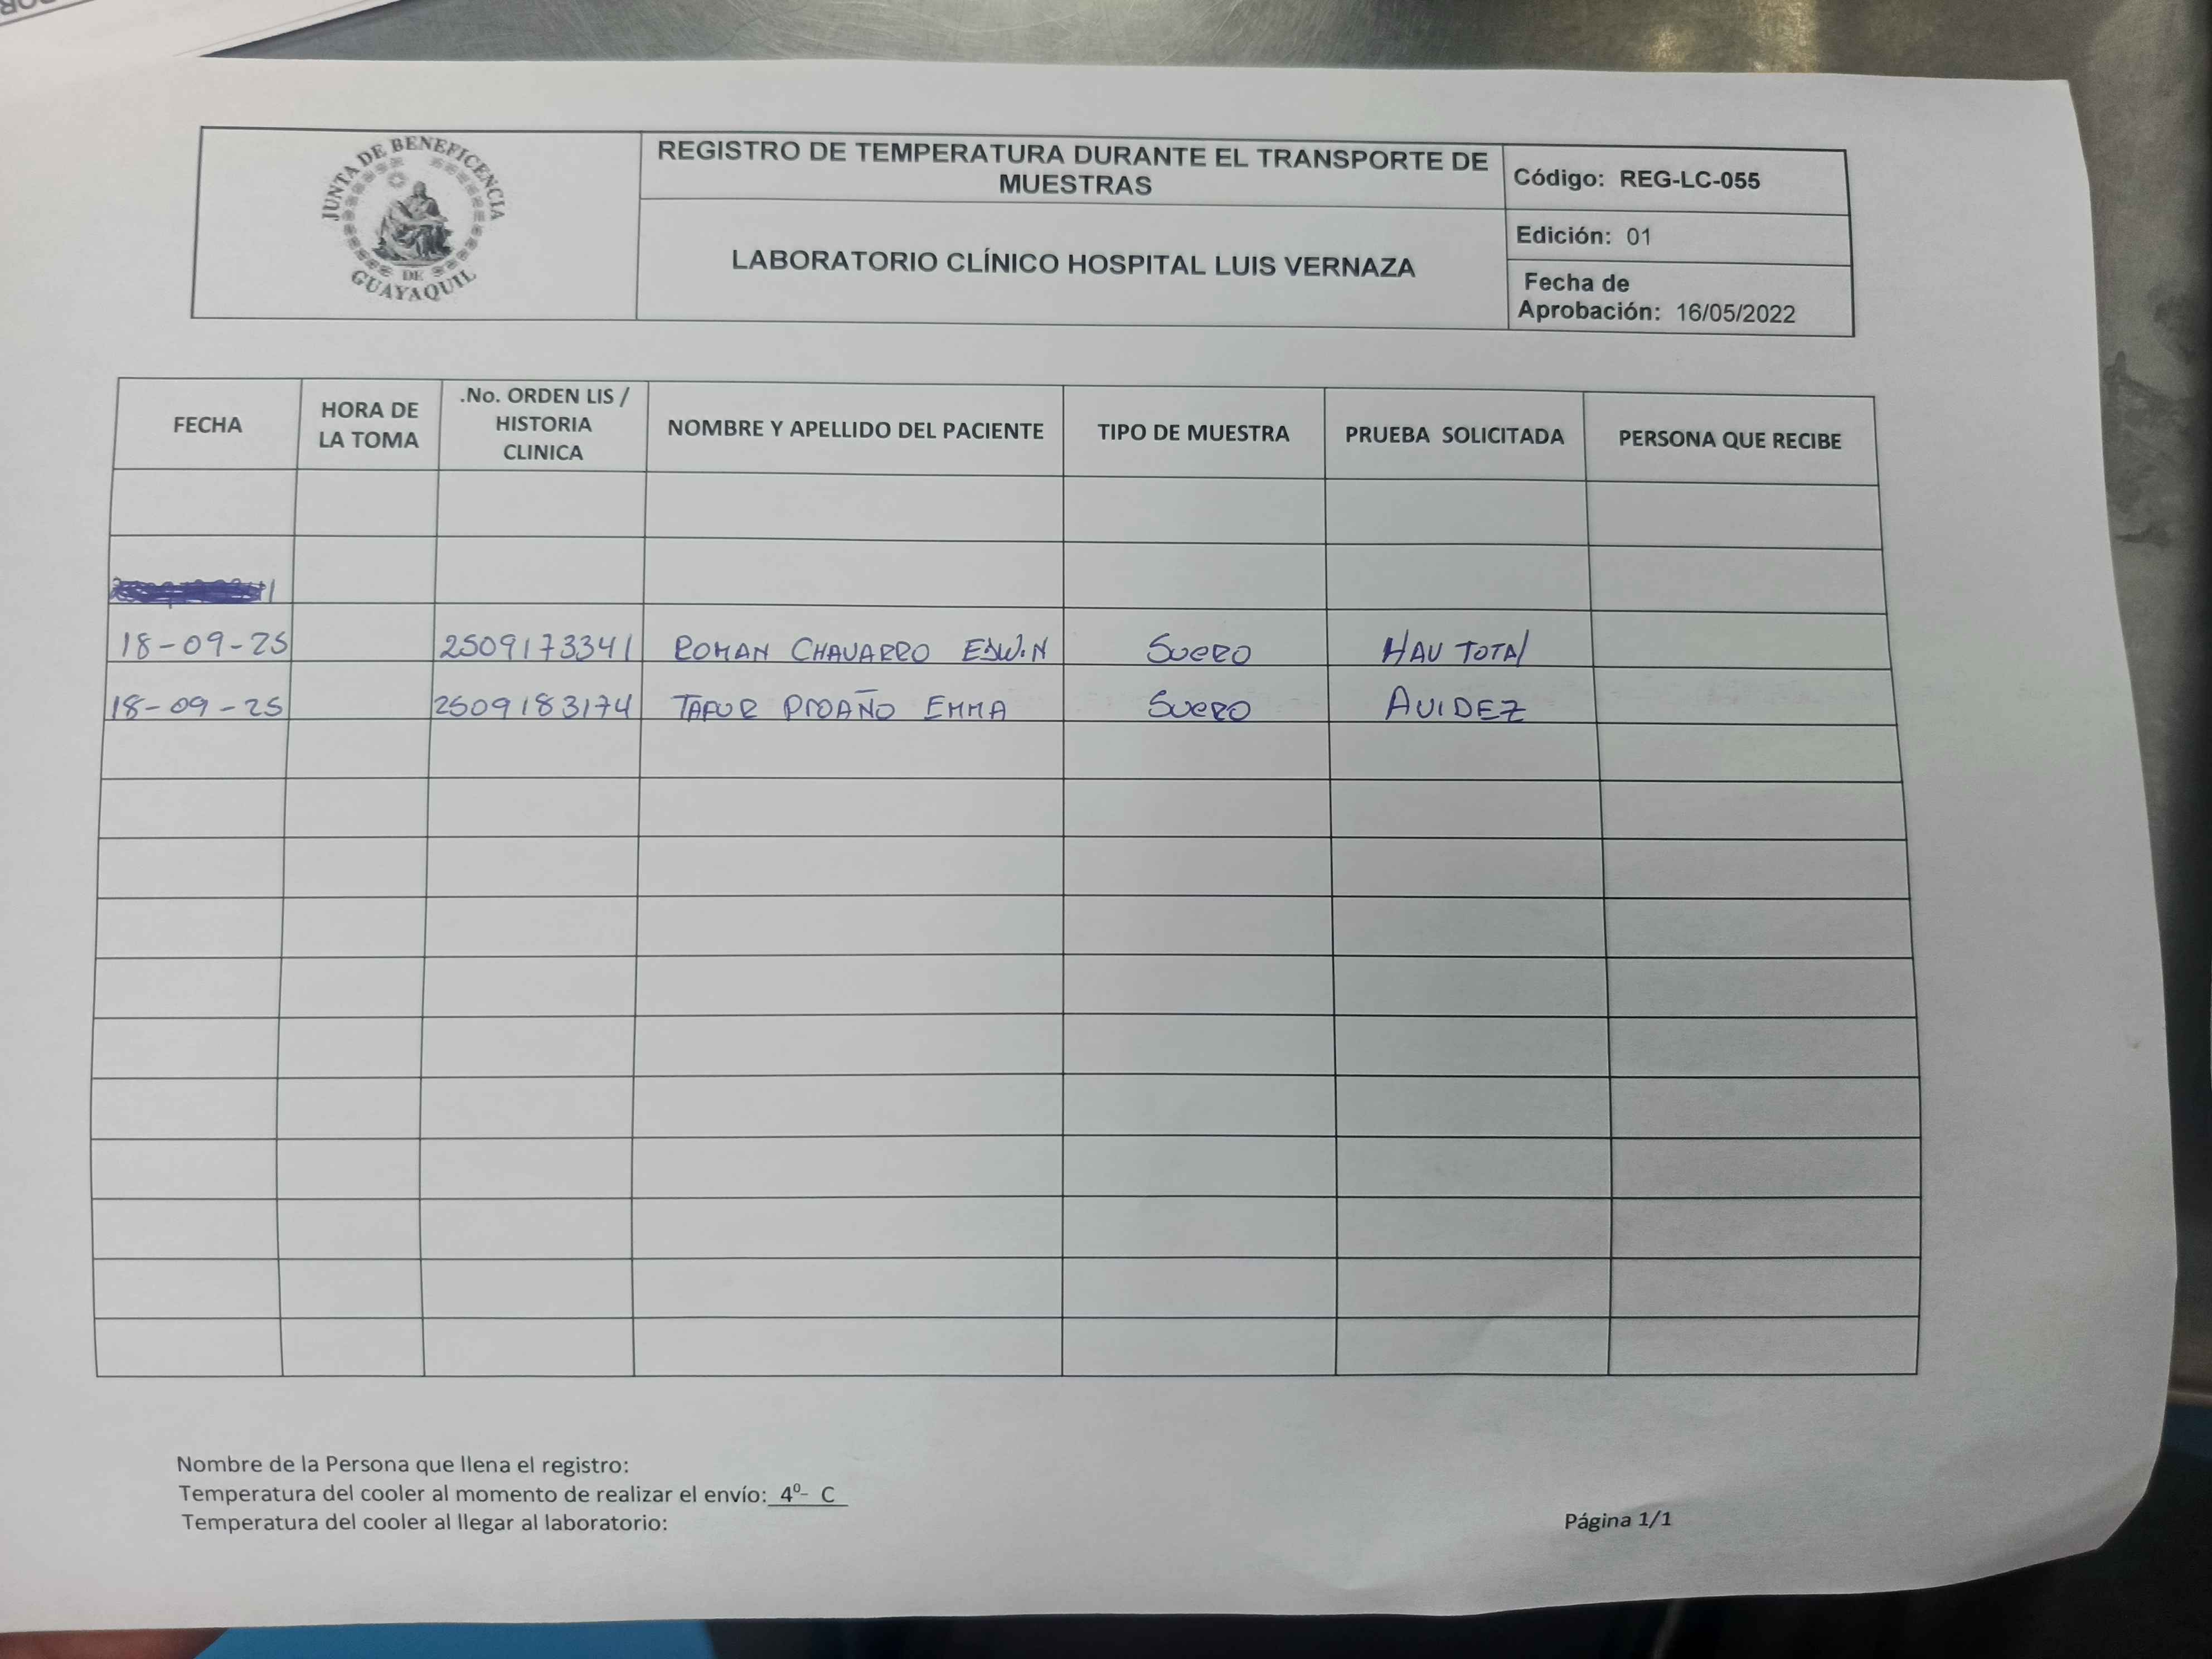 JUNTA DE BENEFICENCIA
DE
GUAYAQUIL
REGISTRO DE TEMPERATURA DURANTE EL TRANSPORTE DE
MUESTRAS
LABORATORIO CLÍNICO HOSPITAL LUIS VERNAZA
Código: REG-LC-055
Edición: 01
Fecha de
Aprobación: 16/05/2022
FECHA
HORA DE
LA TOMA
.No. ORDEN LIS /
HISTORIA
CLINICA
NOMBRE Y APELLIDO DEL PACIENTE
TIPO DE MUESTRA
PRUEBA SOLICITADA
PERSONA QUE RECIBE
18-09-25 2509173341 ROMAN CHAVARRO EDWIN SUERO HAV TOTAL
18-09-25 2509183174 EMMA SUERO AVIDEZ
Nombre de la Persona que llena el registro:
Temperatura del cooler al momento de realizar el envío: 4º- C
Temperatura del cooler al llegar al laboratorio:
Página 1/1